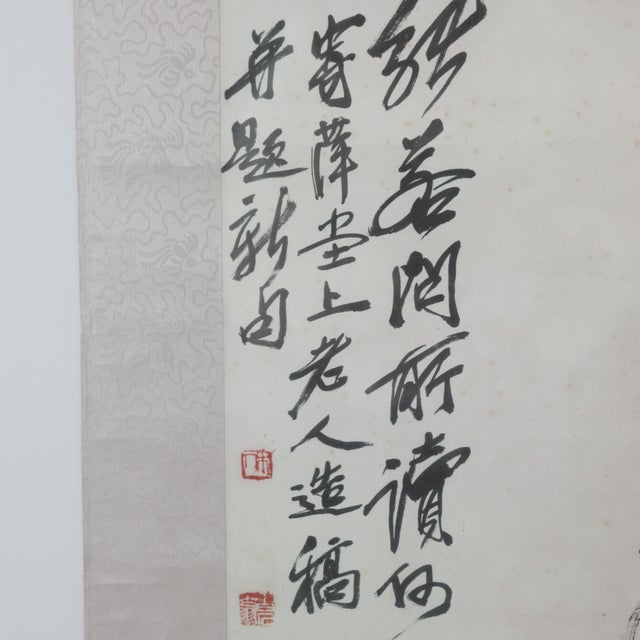 能若問所讀何
寄萍堂上老人造稿
并題新句
木人